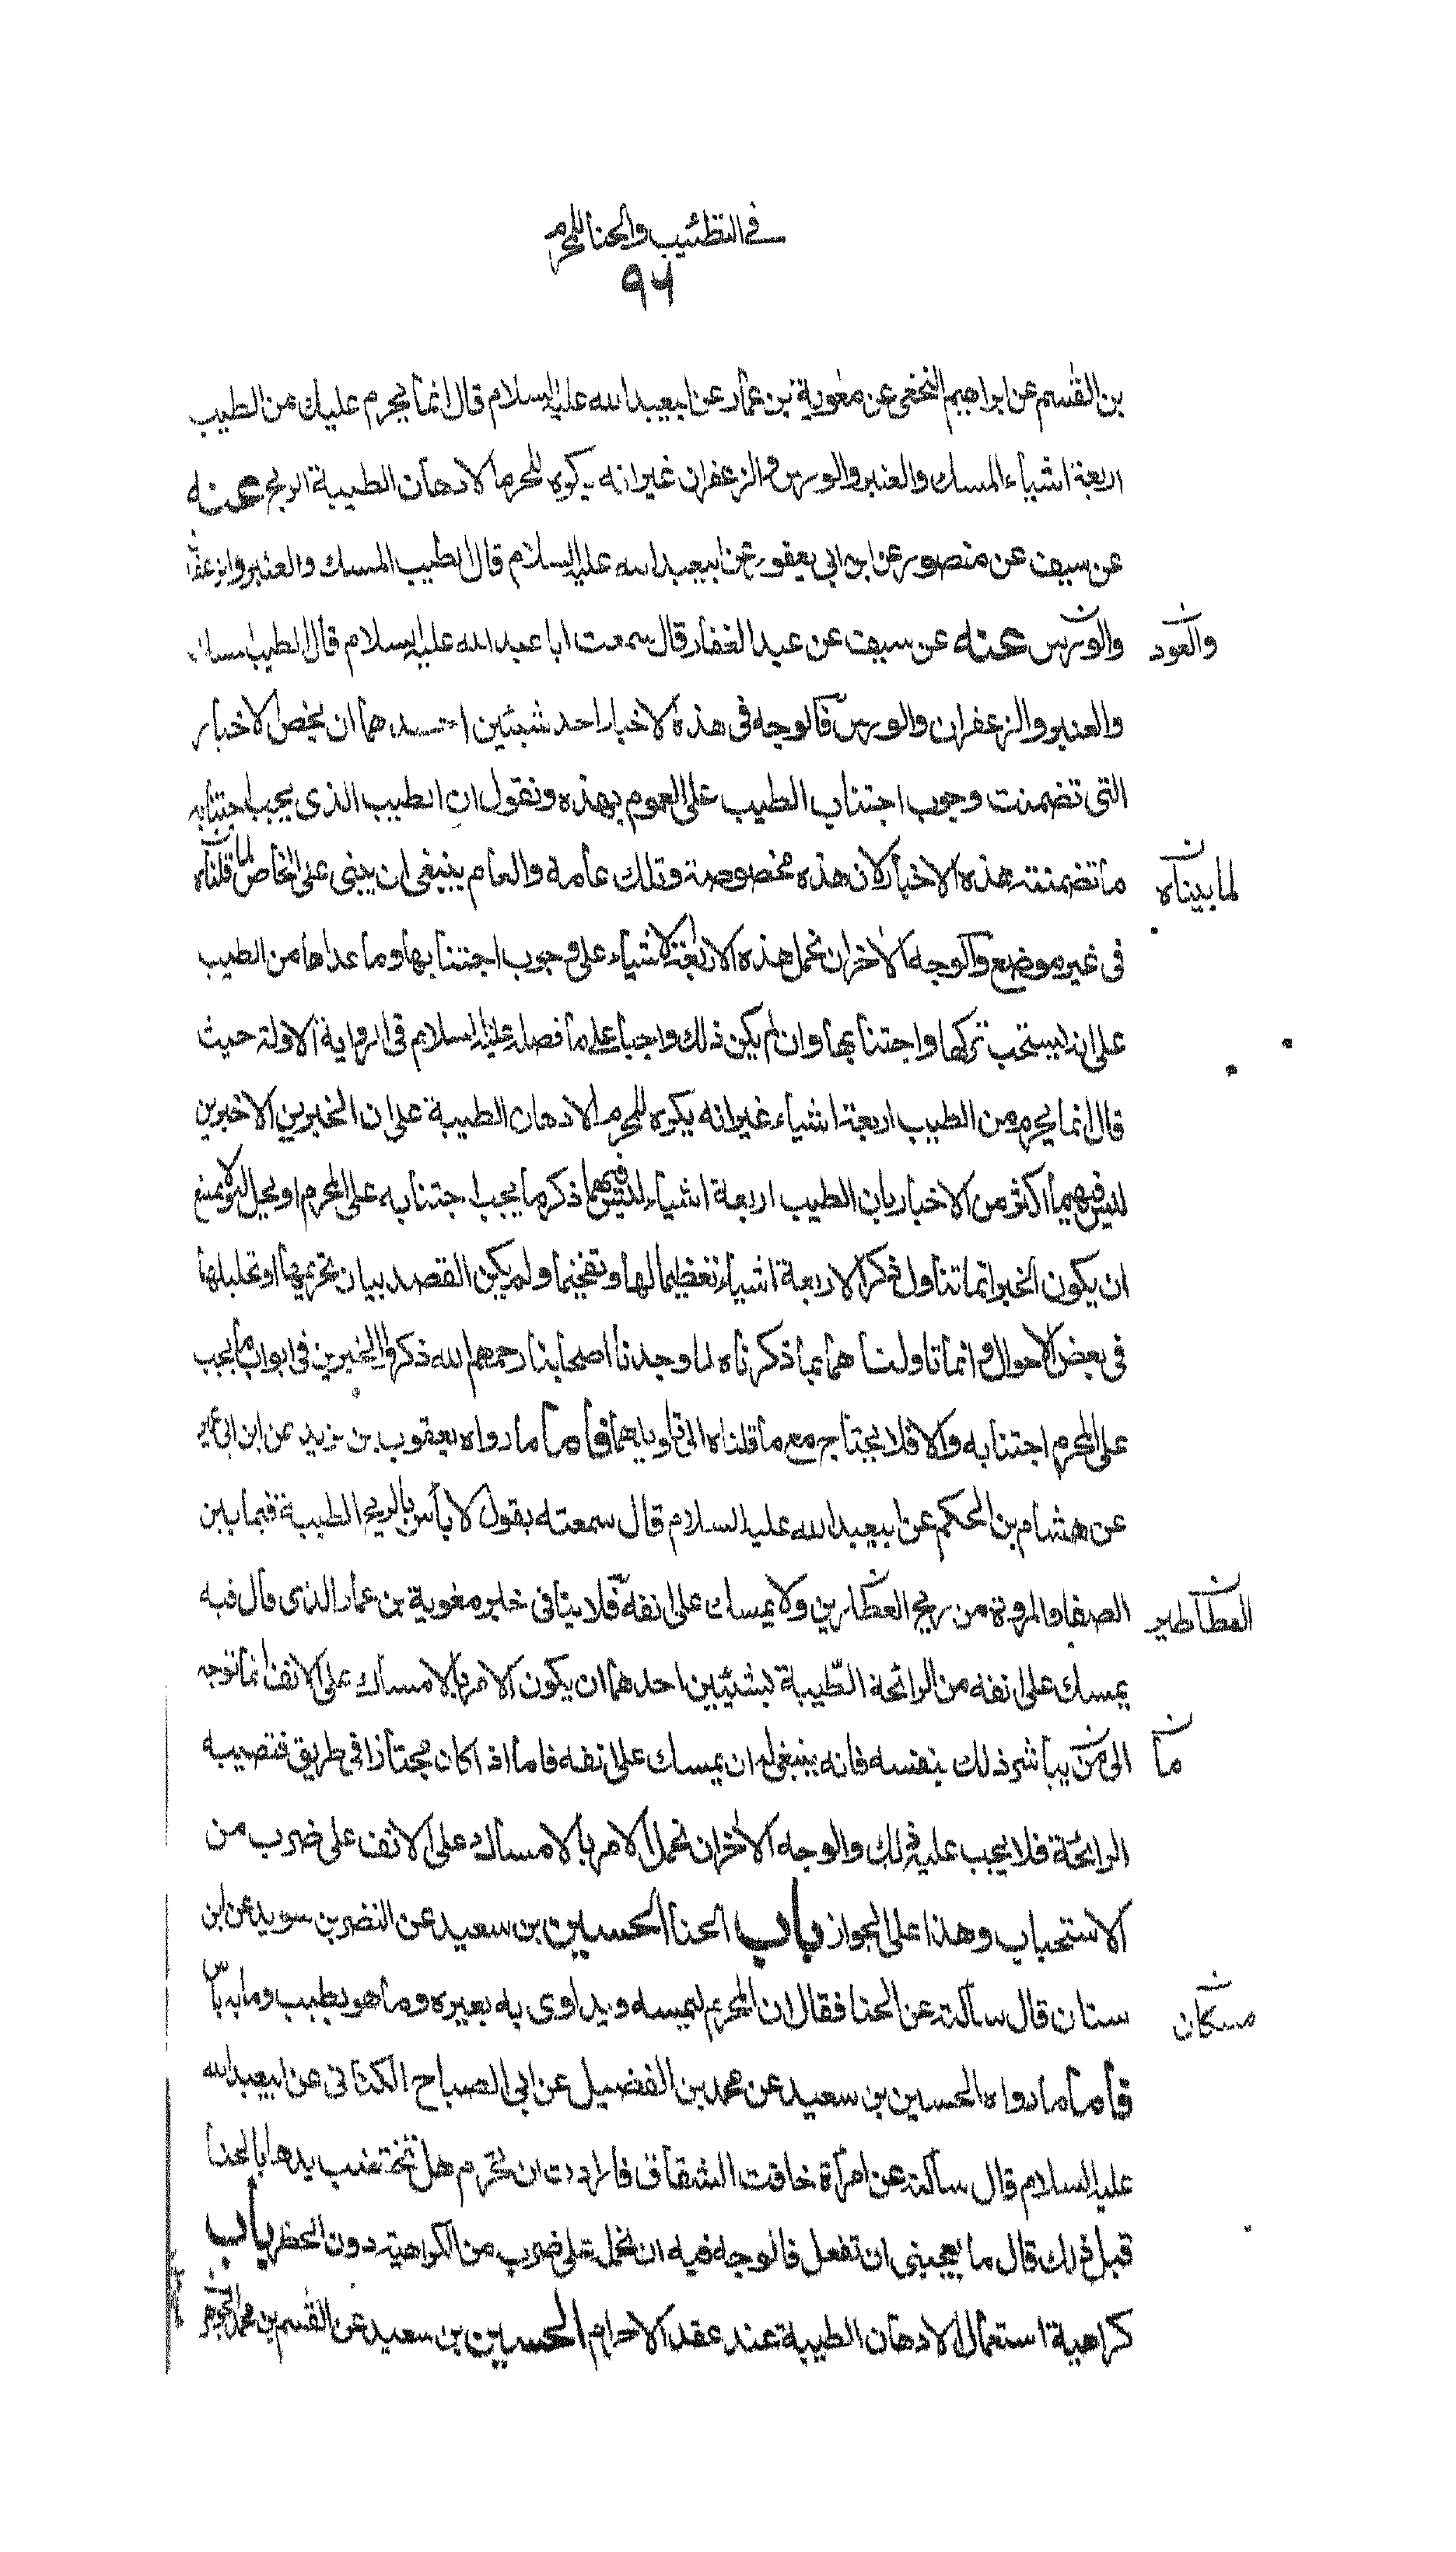 في التطئيب والحنا للمحرم
٩٦
بن القسم عن ابراهيم النخعي عن معوية بن عمار عن ابيعبد الله عليه السلام قال انما يحرم عليك من الطيب
اربعة اشياء المسك والعنبر والورس والزعفران غير انه يكره للمحرم الادهان الطيبة الريح عنه
عن سيف عن منصور عن ابن ابي يعفور عن ابيعبد الله عليه السلام قال الطيب المسك والعنبر والزعفران
والورس عنه عن سيف عن عبد الغفار قال سمعت ابا عبد الله عليه السلام قال الطيب المسك
والعود
والعنبر والزعفران والورس فالوجه في هذه الاخبار احد شيئين احدهما ان يخص الاخبار
التي تضمنت وجوب اجتناب الطيب على العموم بهذه ونقول ان الطيب الذي يجب اجتنابه
ما تضمنته هذه الاخبار لان هذه مخصوصة وتلك عامة والعام ينبغي ان يبنى على الخاص لما قلناه
لما بيناه
في غير موضع والوجه الاخر ان نحمل هذه الاربعة الاشياء على وجوب اجتنابها وما عداها من الطيب
على انه يستحب تركها واجتنابها وان لم يكن ذلك واجبا على ما فصله عليه السلام في الرواية الاولة حيث
قال انما يحرم من الطيب اربعة اشياء غير انه يكره للمحرم الادهان الطيبة على ان الخبرين الاخيرين
ليس فيهما اكثر من الاخبار بان الطيب اربعة اشياء ليس فيهما ذكر ما يجب اجتنابه على المحرم او يحل له ولا يمتنع
ان يكون الخبر انما تناول ذكر الاربعة اشياء تعظيما لها وتفخيما ولم يكن القصد بيان تحريمها او تحليلها
في بعض الاحوال وانما تاولناهما بما ذكرناه لما وجدنا اصحابنا رحمهم الله ذكروا الخبرين في ابواب ما يجب
على المحرم اجتنابه والا فلا يحتاج مع ما قلناه الى تاويلهما فاما ما رواه يعقوب بن يزيد عن ابن ابي عمير
عن هشام بن الحكم عن ابيعبد الله عليه السلام قال سمعته يقول لا بأس بالريح الطيبة فيما بين
الصفا والمروة من ريح العطارين ولا يمسك على انفه فلا ينافي خبر معوية بن عمار الذي قال فيه
يمسك على انفه من الرائحة الطيبة بشيئين احدهما ان يكون الامر بالامساك على الانف انما توجه
الى من يباشر ذلك بنفسه فانه ينبغي له ان يمسك على انفه فاما اذا كان مجتازا في طريق فتصيبه
ما
الرائحة فلا يجب عليه ذلك والوجه الاخر ان نحمل الامر بالامساك على الانف على ضرب من
الاستحباب وهذا على الجواز باب الحنا الحسين بن سعيد عن النضر بن سويد عن ابن
سنان قال سألته عن الحنا فقال ان المحرم ليمسه ويداوي به بعيره وما هو بطيب وما به بأس
مسكان
فاما ما رواه الحسين بن سعيد عن محمد بن الفضيل عن ابي الصباح الكناني عن ابيعبد الله
عليه السلام قال سألته عن امرأة خافت الشقاق فارادت ان تحرم هل تختضب يدها بالحنا
قبل ذلك قال ما يعجبني ان تفعل فالوجه فيه ان نحمله على ضرب من الكراهية دون الحظر باب
كراهية استعمال الادهان الطيبة عند عقد الاحرام الحسين بن سعيد عن القسم بن محمد الجوهري